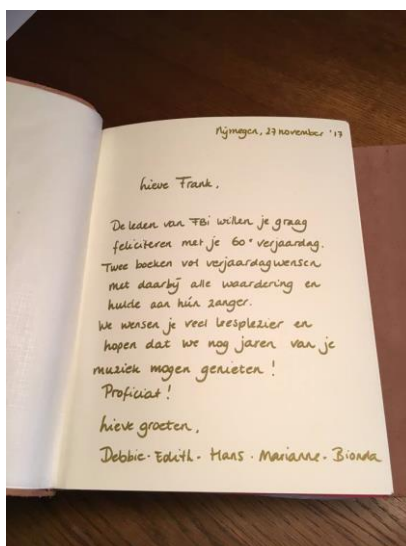 Nijmegen, 27 november '17
Lieve Frank,
De leden van FBi willen je graag
feliciteren met je 60e verjaardag.
Twee boeken vol verjaardagwensen
met daarbij alle waardering en
hulde aan hún zanger.
We wensen je veel leesplezier en
hopen dat we nog jaren van je
muziek mogen genieten!
Proficiat!
Lieve groeten,
Debbie · Edith · Hans · Marianne · Bionda